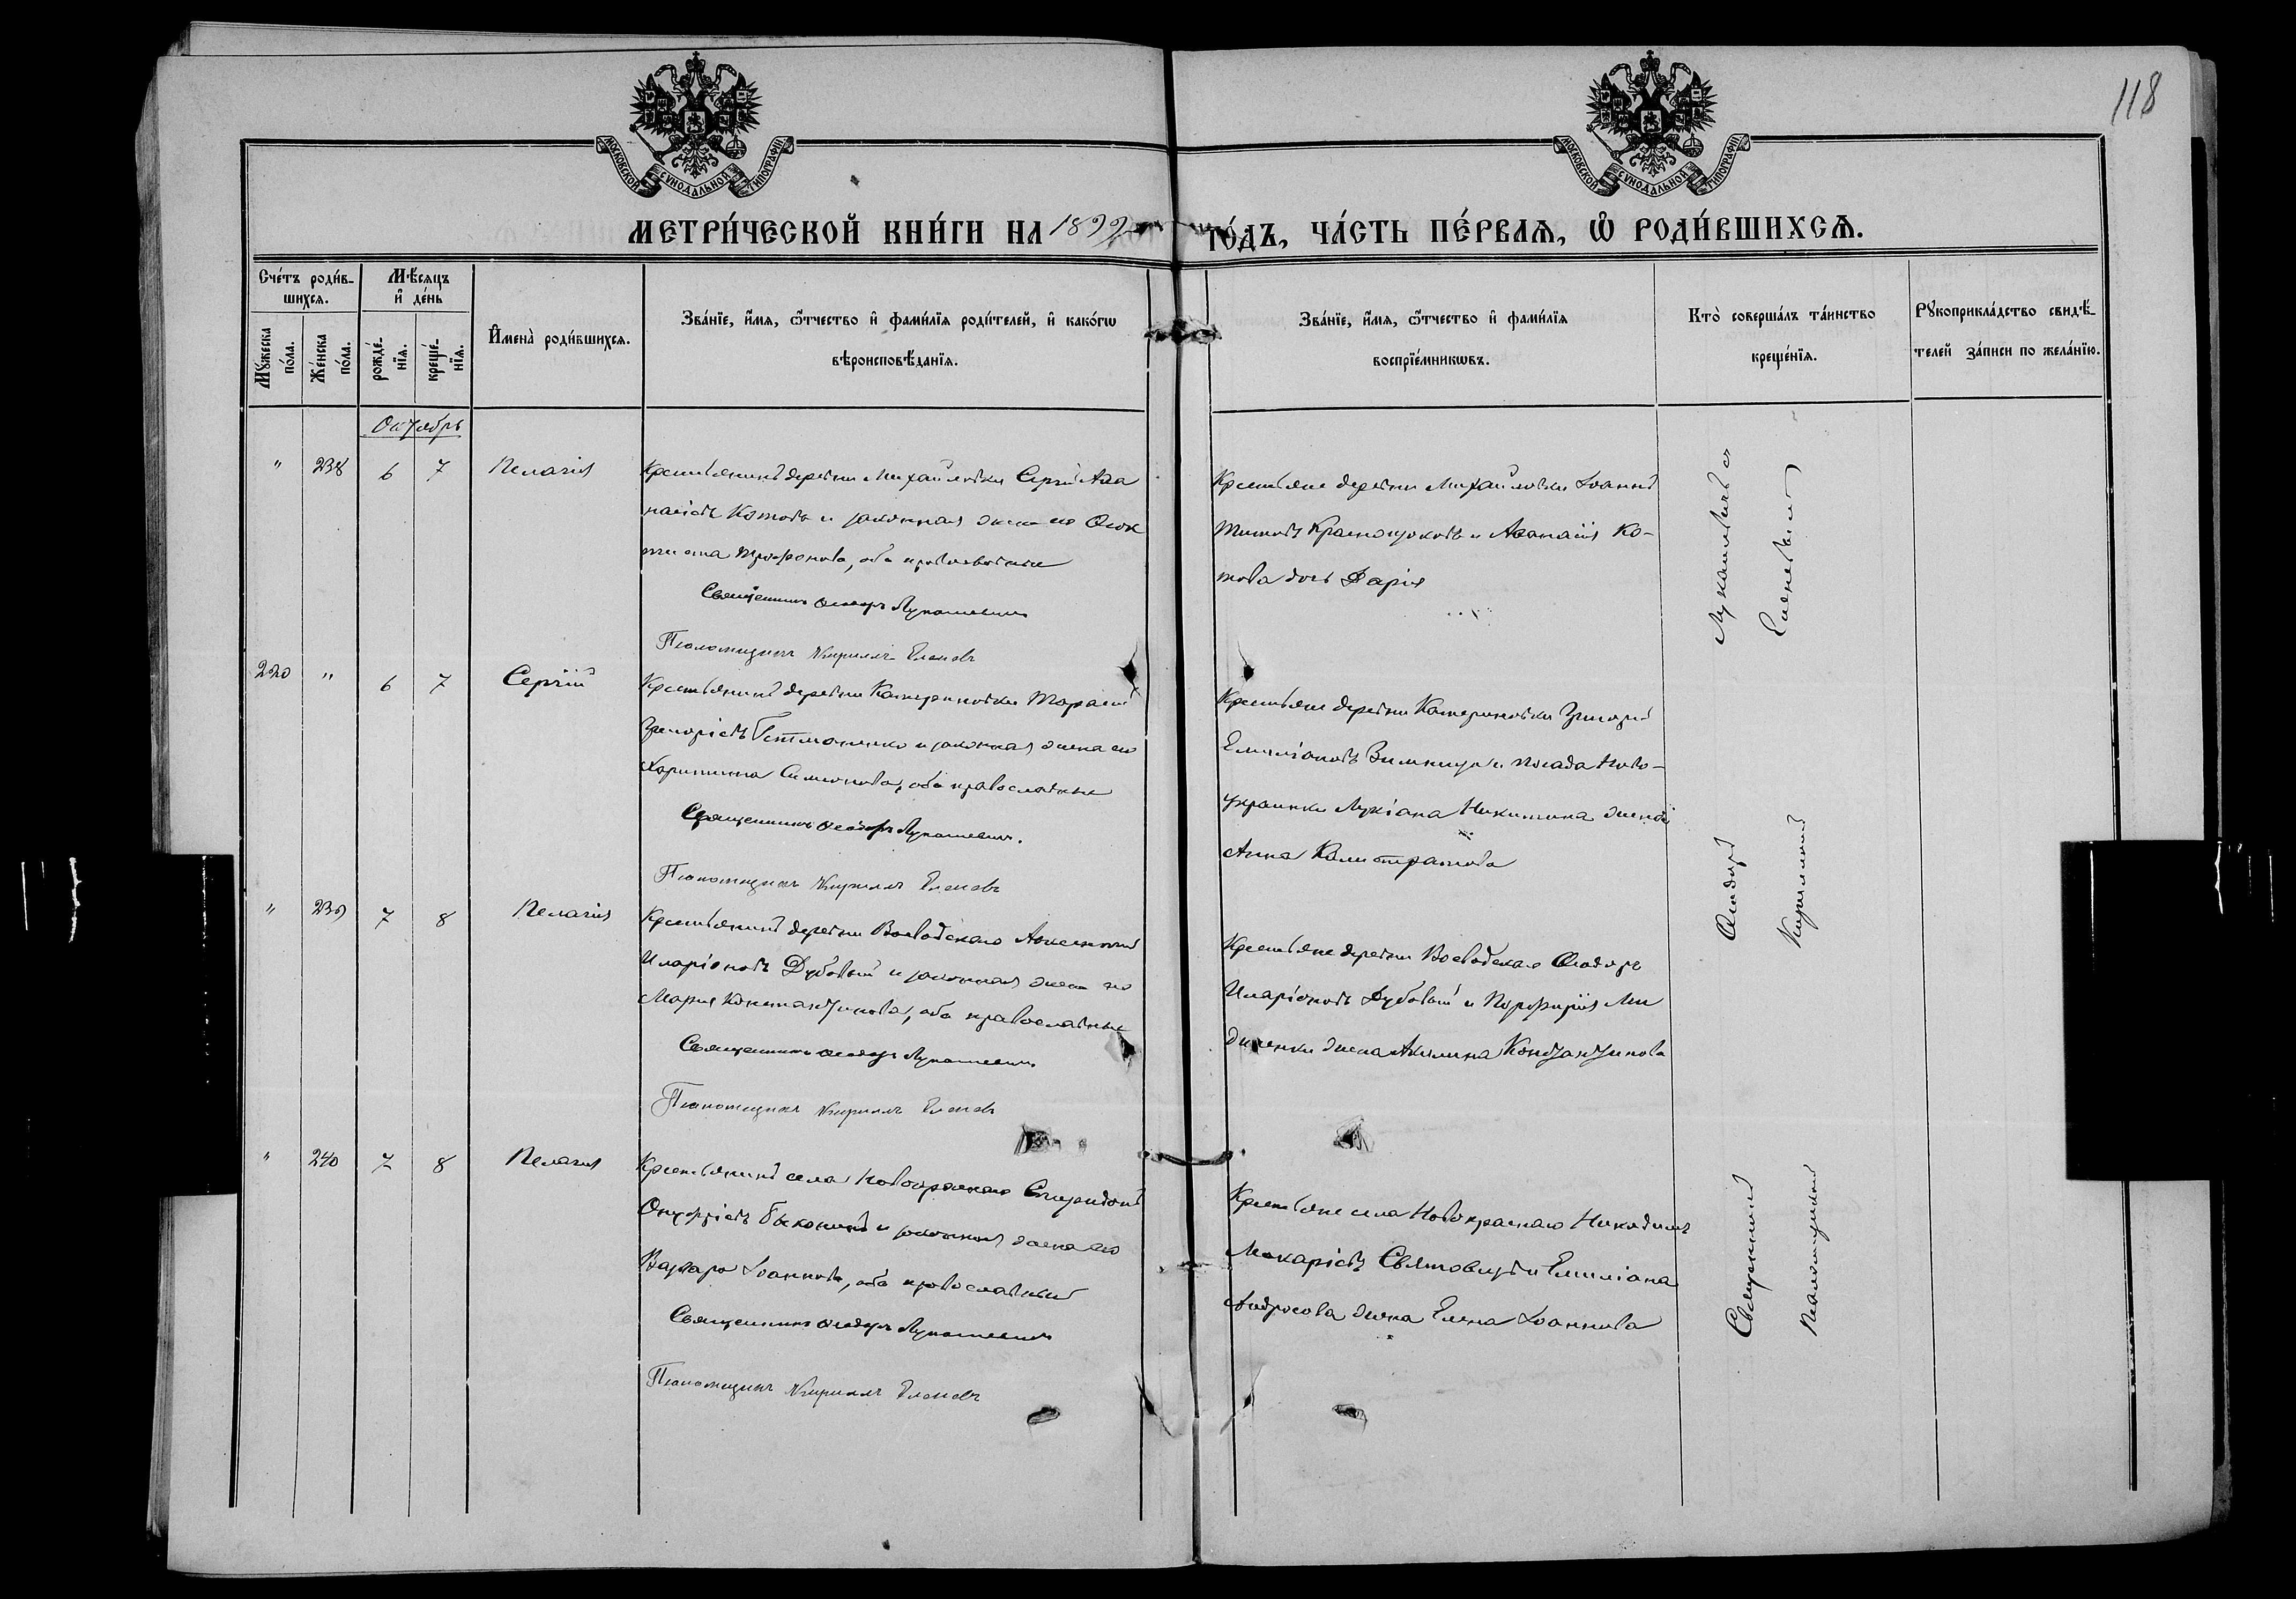 118
МОСКОВСКОЙ СѴНОДАЛЬНОЙ ТИПОГРАФІИ
МОСКОВСКОЙ СѴНОДАЛЬНОЙ ТИПОГРАФІИ
МЕТРИ́ЧЕСКОЙ КНИ́ГИ НА 1899 ГО́ДЪ, ЧА́СТЬ ПЕ́РВАѦ, Ѡ РОДИ́ВШИХСѦ.
Сче́тъ роди́в-
шихсѧ.
Мꙋ́жеска
по́ла.
Же́нска
по́ла.
Мѣ́сѧцъ
и҆ де́нь
рожде́-
нїѧ.
креще́-
нїѧ.
И҆мена̀ роди́вшихсѧ.
Зва́нїе, и҆́мѧ, ѻ҆́тчество и҆ фами́лїѧ роди́телей, и҆ како́гѡ
вѣроисповѣ́данїѧ.
Зва́нїе, и҆́мѧ, ѻ҆́тчество и҆ фами́лїѧ
воспрїе́мникѡвъ.
Кто̀ соверша́лъ та́инство
креще́нїѧ.
Рꙋкоприкла́дство свидѣ́-
телей за́писи по жела́нїю.
Октябрь
" 238 6 7 Пелагія
Крестьянинъ деревни Михайловки Сергій Аѳа
насіевъ Котовъ и законная жена его Ѳеок
тиста Трофимова, оба православные
Священникъ Ѳеодоръ Лукашевичъ
Псаломщикъ Кириллъ Еленевъ
Крестьяне деревни Михайловки Іоаннъ
Титовъ Краснощоковъ и Аѳанасія Ко-
това дочь Дарія
220 " 6 7 Сергій
Крестьянинъ деревни Катериновки Тарасій
Григоріевъ Гетманенко и законная жена его
Харитина Симеонова, оба православные
Священникъ Ѳеодоръ Лукашевичъ.
Псаломщикъ Кириллъ Еленевъ
Крестьяне деревни Катериновки Григорій
Емиліановъ Винница и посада Ново-
украинки Лукіана Никитина жена
Анна Калистратова
" 239 7 8 Пелагія
Крестьянинъ деревни Воеводскаго Авксентій
Иларіоновъ Дубовый и законная жена его
Марія Константинова, оба православные
Священникъ Ѳеодоръ Лукашевичъ.
Псаломщикъ Кириллъ Еленевъ
Крестьяне деревни Воеводскаго Ѳеодоръ
Иларіоновъ Дубовый и Порфирія Ми
диченки жена Акилина Константинова
" 240 7 8 Пелагія
Крестьянинъ села Новокраснаго Спиридонъ
Онуфріевъ и законная жена его
Варвара Іоаннова, оба православные
Священникъ Ѳеодоръ Лукашевичъ
Псаломщикъ Кириллъ Еленевъ
Крестьяне села Новокраснаго Никодимъ
Макаріевъ и Емиліана
Андросова жена Елена Іоаннова
Священникъ Ѳеодоръ Лукашевичъ съ
Псаломщикомъ Кирилломъ Еленевымъ